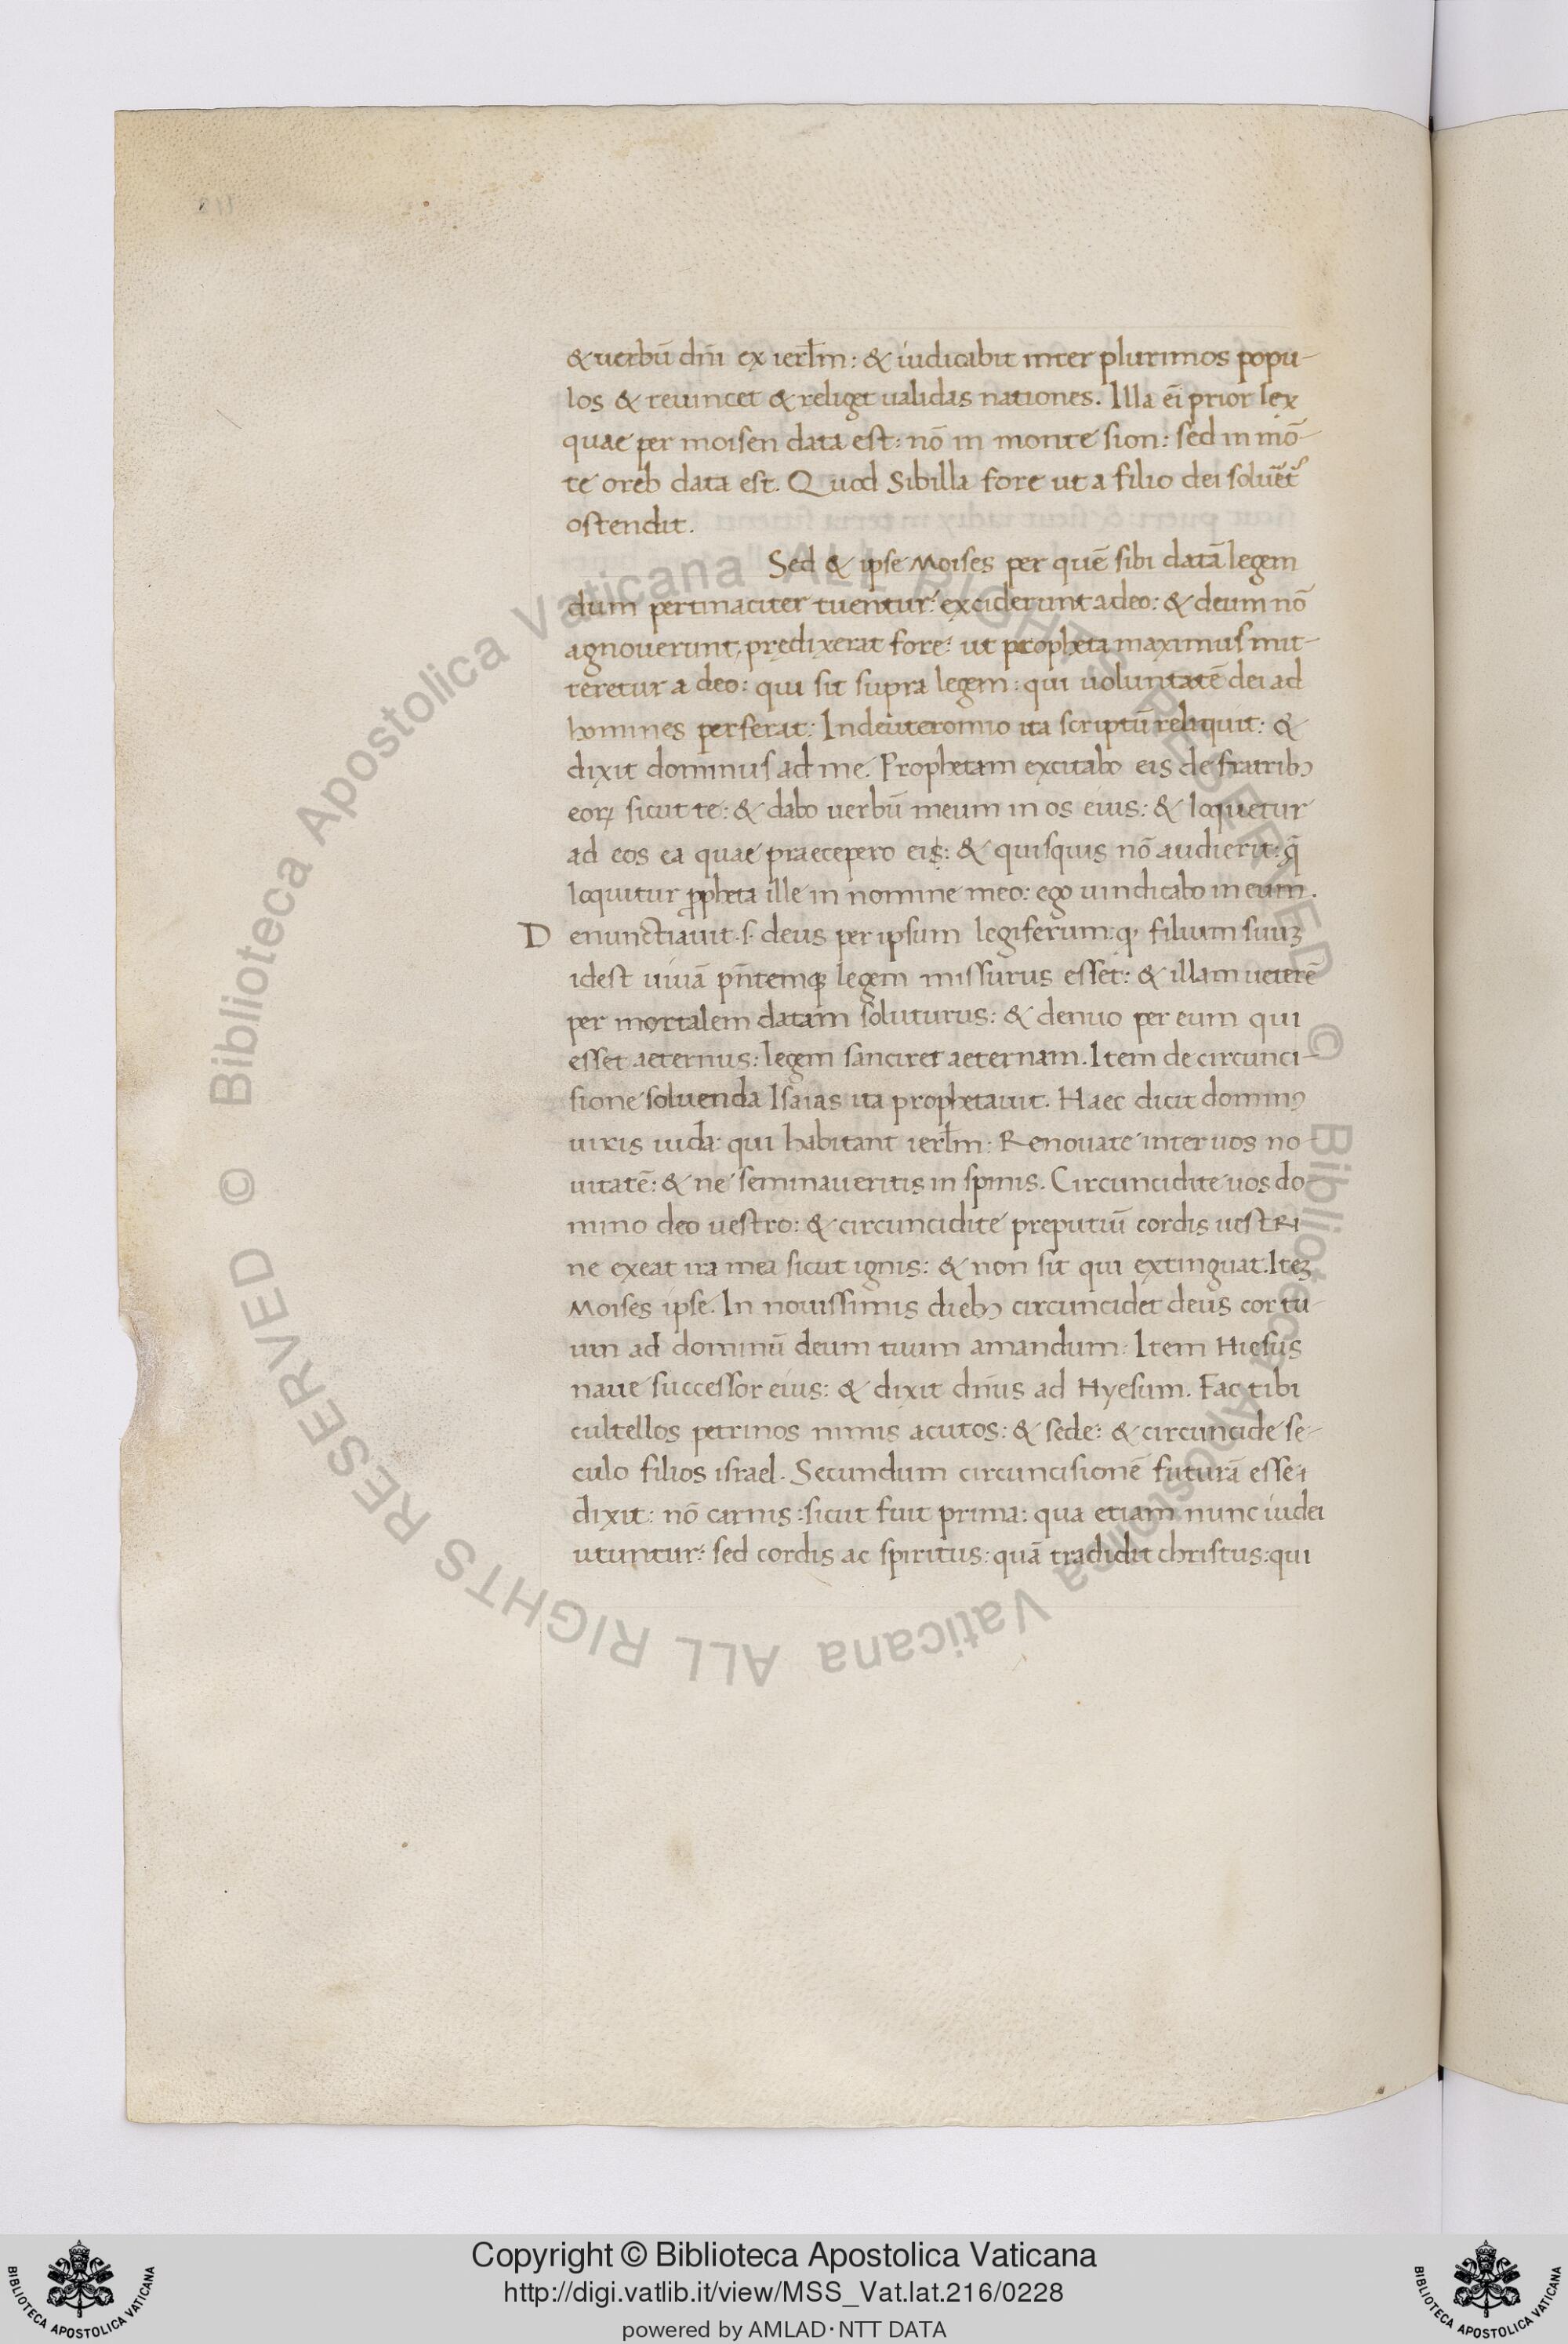 & uerbū dn̄i ex ierl̄m: & iudicabit inter plurimos popu-
los & reuincet & religet ualidas nationes. Illa ēi prior lex
quae per moisen data est: nō in monte sion: sed in mō-
te oreb data est. Quod Sibilla fore ut a filio dei soluet᷑
ostendit.
Sed & ipse Moises per quē sibi datā legem
dum pertinaciter tuentur: exciderunt a deo: & deum nō
agnouerunt, prędixerat fore: ut propheta maximus mit-
teretur a deo: qui sit supra legem: qui uoluntatē dei ad
homines perferat: In deuteronmio ita scriptū reliquit: &
dixit dominus ad me. Prophetam excitabo eis de fratribꝫ
eoꝝ sicut te: & dabo uerbū meum in os eius: & loquetur
ad eos ea quae praecepero eis: & quisquis nō audierit: q̄
loquitur ꝓpheta ille in nomine meo: ego uindicabo in eum.
Denunctiauit .s. deus per ipsum legiferum: ꝙ filium suuꝫ
idest uiuā pn̄temqꝫ legem missurus esset: & illam ueterē
per mortalem datam soluturus: & denuo per eum qui
esset aeternus: legem sanciret aeternam. Item de circunci-
sione soluenda Isaias ita prophetauit. Haec dicit dominꝰ
uiris iuda: qui habitant ierl̄m: Renouate inter uos no-
uitatē: & ne seminaueritis in spinis. Circuncidite uos do-
mino deo uestro: & circuncidite preputiū cordis uestri
ne exeat ira mea sicut ignis: & non sit qui extinguat. Iteꝫ
Moises ipse. In nouissimis diebꝫ circuncidet deus cor tu-
um ad dominū deum tuum amandum: Item Hiesus
naue successor eius: & dixit dn̄us ad Hyesum. Fac tibi
cultellos petrinos nimis acutos: & sede: & circuncide se-
culo filios israel. Secundum circuncisionē futurā esse
dixit: nō carnis: sicut fuit prima: qua etiam nunc iudei
utuntur: sed cordis ac spiritus: quā tradidit christus: qui
Biblioteca Apostolica Vaticana ALL RIGHTS RESERVED ©
Biblioteca Apostolica Vaticana ALL RIGHTS RESERVED ©
Copyright © Biblioteca Apostolica Vaticana
http://digi.vatlib.it/view/MSS_Vat.lat.216/0228
powered by AMLAD·NTT DATA
BIBLIOTECA APOSTOLICA VATICANA
BIBLIOTECA APOSTOLICA VATICANA